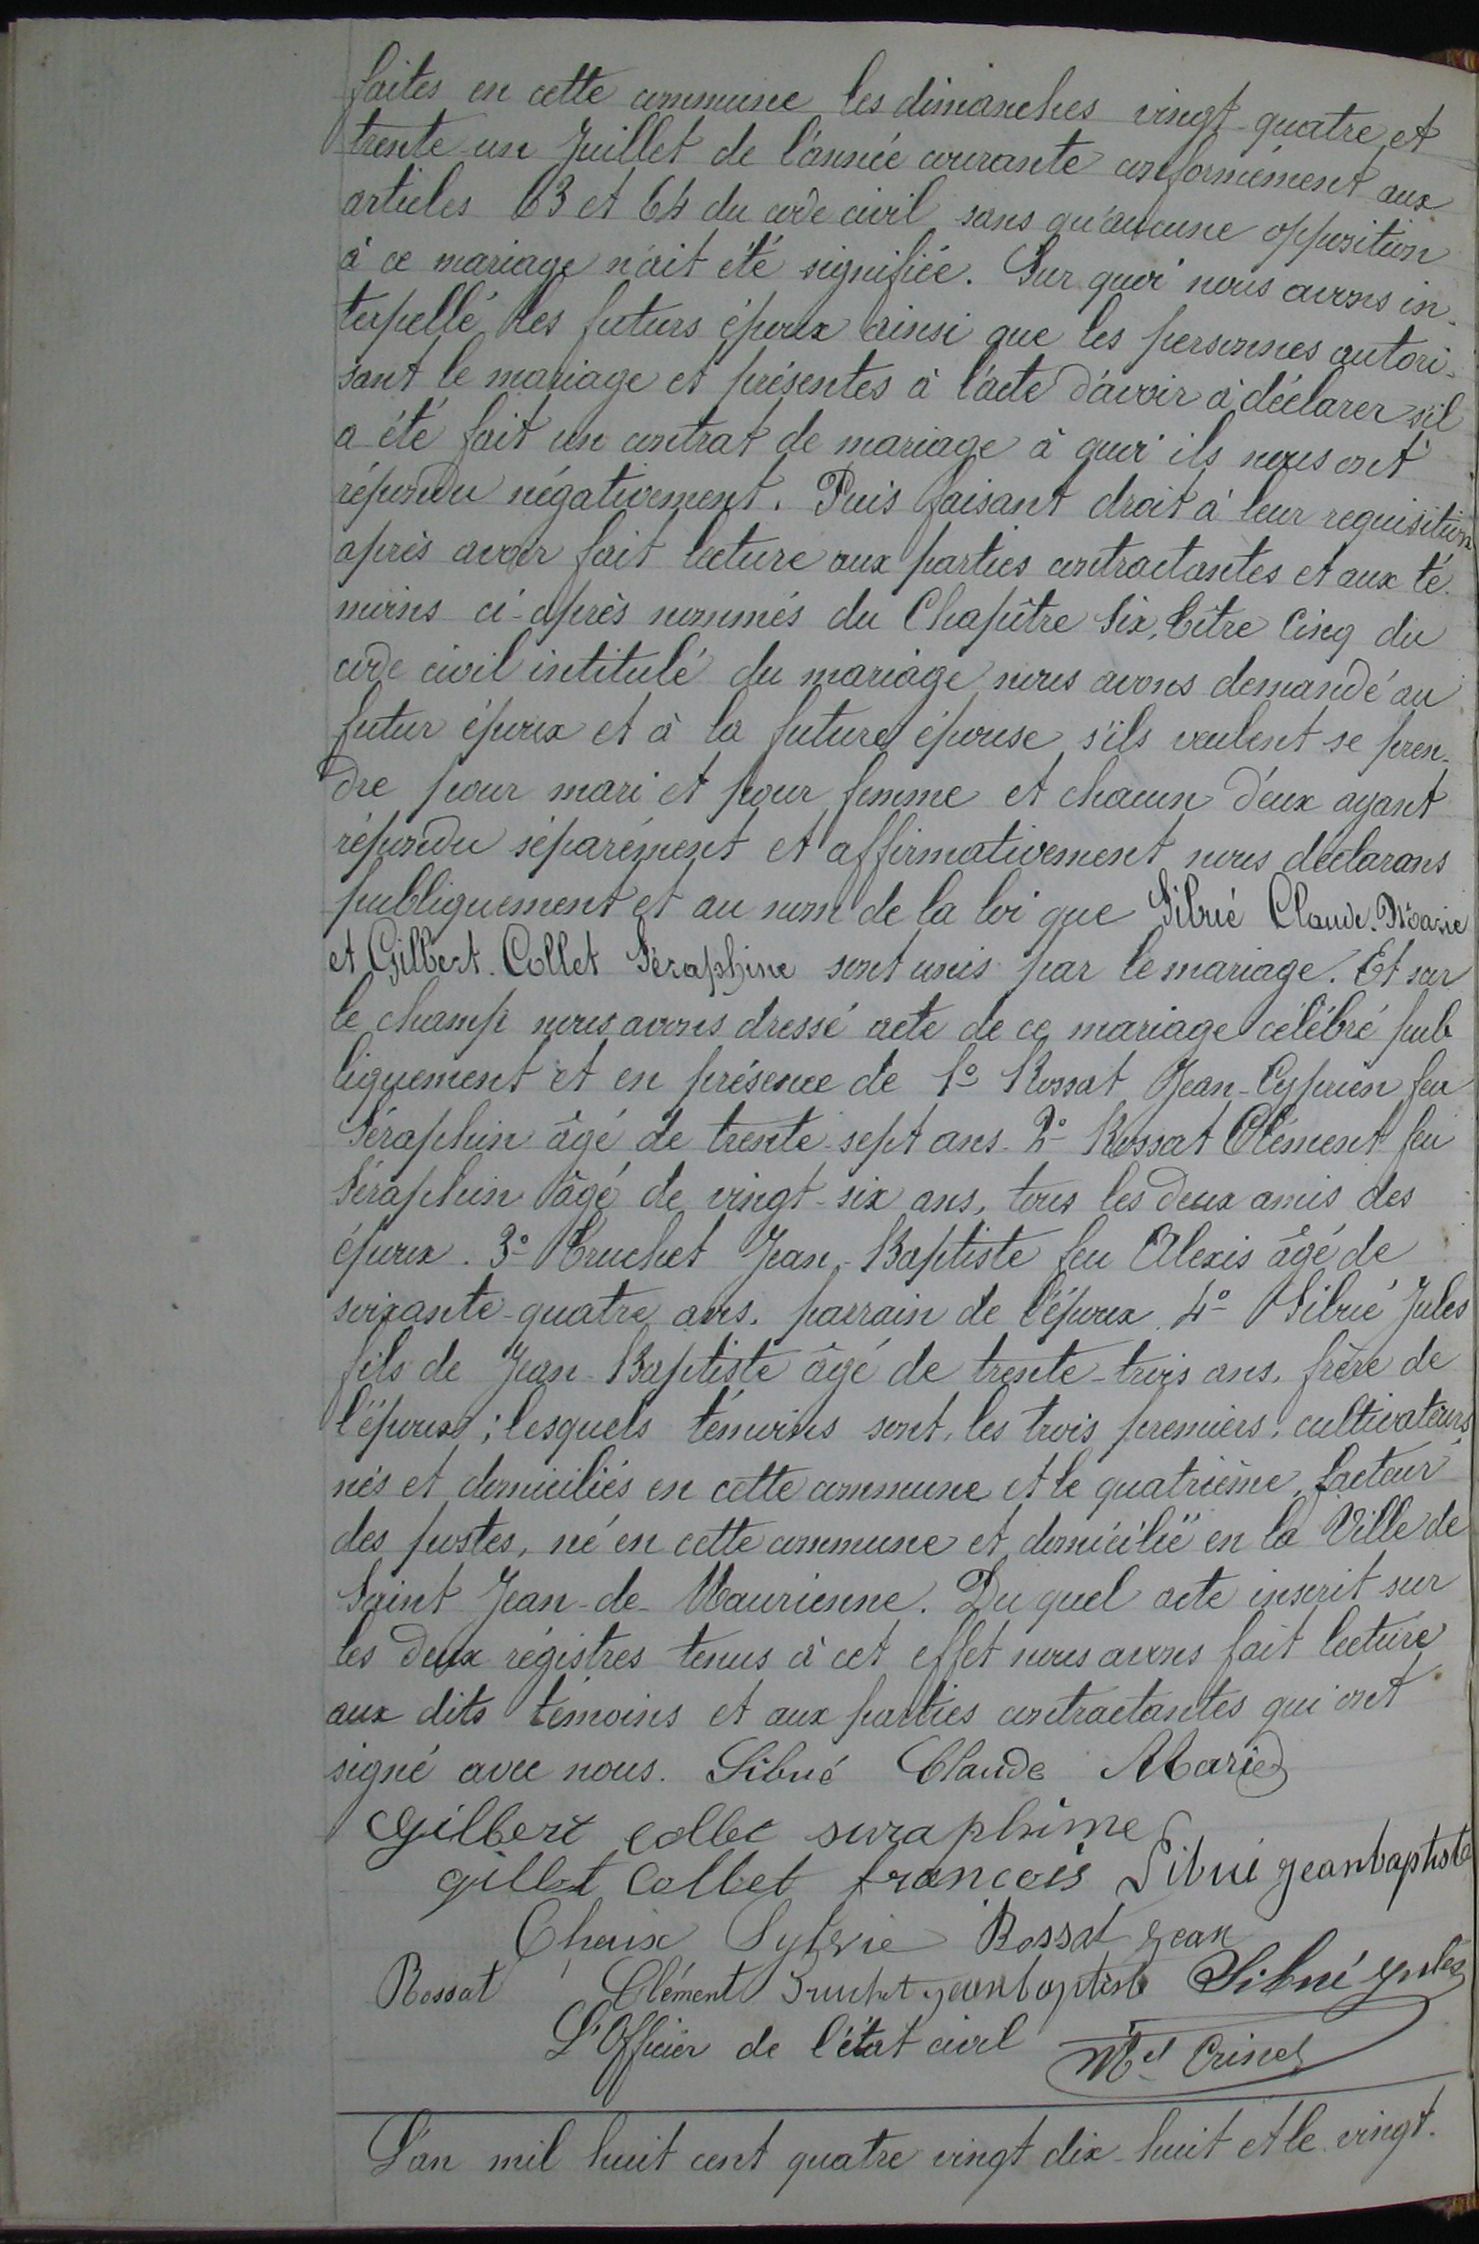 faites en cette commune les dimanches vingt-quatre et
trente-un Juillet de l'année courante conformément aux
articles 63 et 64 du code civil sans qu'aucune opposition
à ce mariage n'ait été signifiée. Sur quoi nous avons in-
terpellé les futurs époux ainsi que les personnes autori-
sant le mariage et présentes à l'acte d'avoir à déclarer s'il
a été fait un contrat de mariage à quoi ils nous ont
répondu négativement. Puis faisant droit à leur requisition
après avoir fait lecture aux parties contractantes et aux té-
moins ci-après nommés du Chapître Six, titre Cinq du
code civil intitulé du mariage nous avons demandé au
futur époux et à la future épouse s'ils veulent se pren-
dre pour mari et pour femme et chacun d'eux ayant
répondu séparément et affirmativement nous déclarons
publiquement et au nom de la loi que Sibué Claude-Marie
et Gilbert-Collet Séraphine sont unis par le mariage. Et sur
le champ nous avons dressé acte de ce mariage célébré pub
liquement et en présence de 1º Rossat Jean-Cyprien feu
Séraphin âgé de trente-sept ans. 2º Rossat Clément feu
Séraphin âgé de vingt-six ans, tous les deux amis des
époux. 3º Truchet Jean-Baptiste feu Alexis âgé de
soixante-quatre ans. parrain de l'époux 4º Sibué Jules
fils de Jean-Baptiste âgé de trente-trois ans, frère de
l'époux; lesquels témoins sont, les trois premiers, cultivateurs
nés et domiciliés en cette commune et le quatrième, facteur
des postes, né en cette commune et domicilié en la Ville de
Saint Jean-de-Maurienne. Du quel acte inscrit sur
les deux régistres tenus à cet effet nous avons fait lecture
aux dits témoins et aux parties contractantes qui ont
signé avec nous. Sibué Claude Marie
Gilbert collet
gilbert Collet francois Sibué jeanbaptiste
Chaix Sylvie Rossat Jean
Rossat Clément Truchet jeanbaptiste Sibué Jules
L'Officier de l'état civil
L'an mil huit cent quatre vingt dix-huit et le vingt-